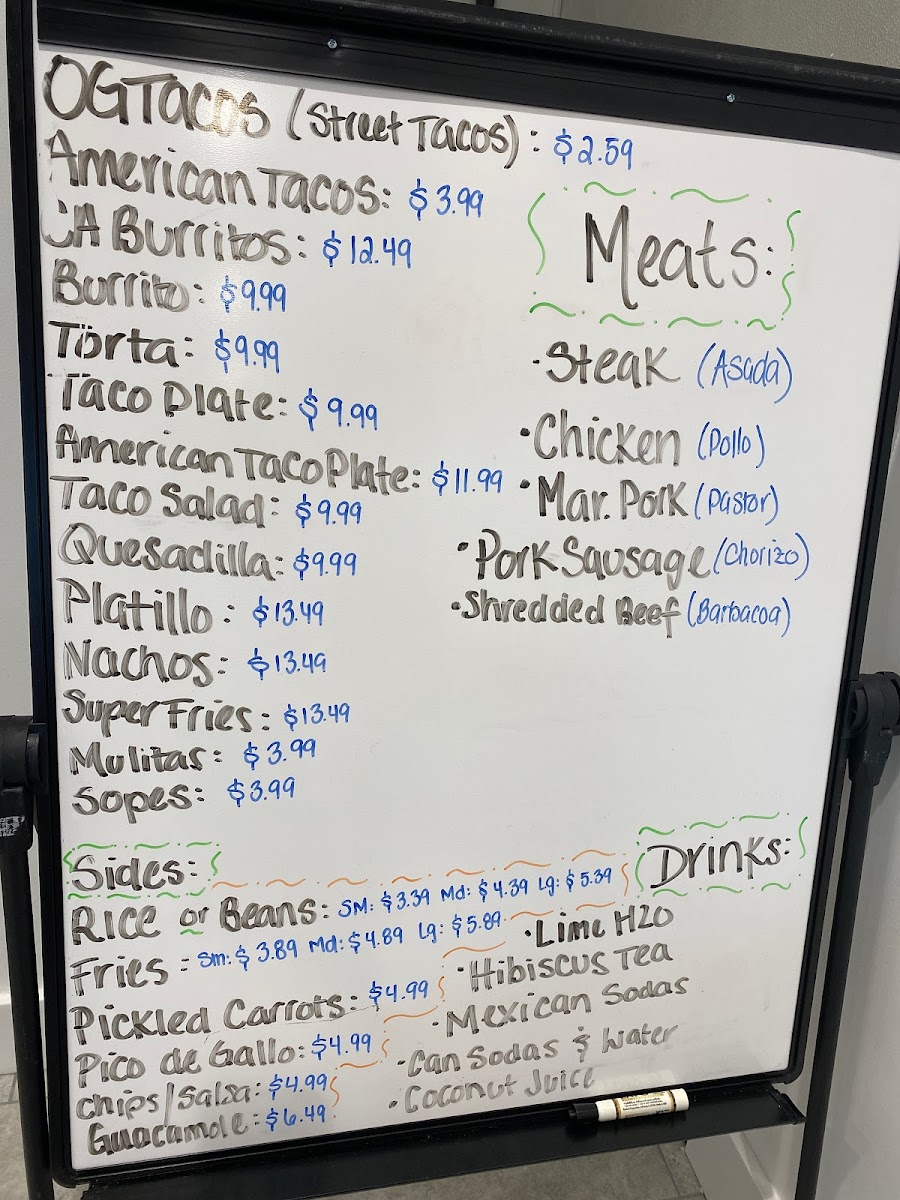 OG Tacos (Street Tacos): $2.59
American Tacos: $3.99
CA Burritos: $12.49
Burrito: $9.99
Torta: $9.99
Taco Plate: $9.99
American Taco Plate: $11.99
Taco Salad: $9.99
Quesadilla: $9.99
Platillo: $13.49
Nachos: $13.49
Super Fries: $13.49
Mulitas: $3.99
Sopes: $3.99
Meats:
·Steak (Asada)
·Chicken (Pollo)
·Mar. Pork (Pastor)
·Pork Sausage (Chorizo)
·Shredded Beef (Barbacoa)
Sides:
Rice or Beans: SM: $3.39 Md: $4.39 Lg: $5.39
Fries: Sm: $3.89 Md: $4.89 Lg: $5.89
Pickled Carrots: $4.99
Pico de Gallo: $4.99
Chips/Salsa: $4.99
Guacamole: $6.49
Drinks:
·Lime H2O
·Hibiscus Tea
·Mexican Sodas
·Can Sodas & Water
·Coconut Juice